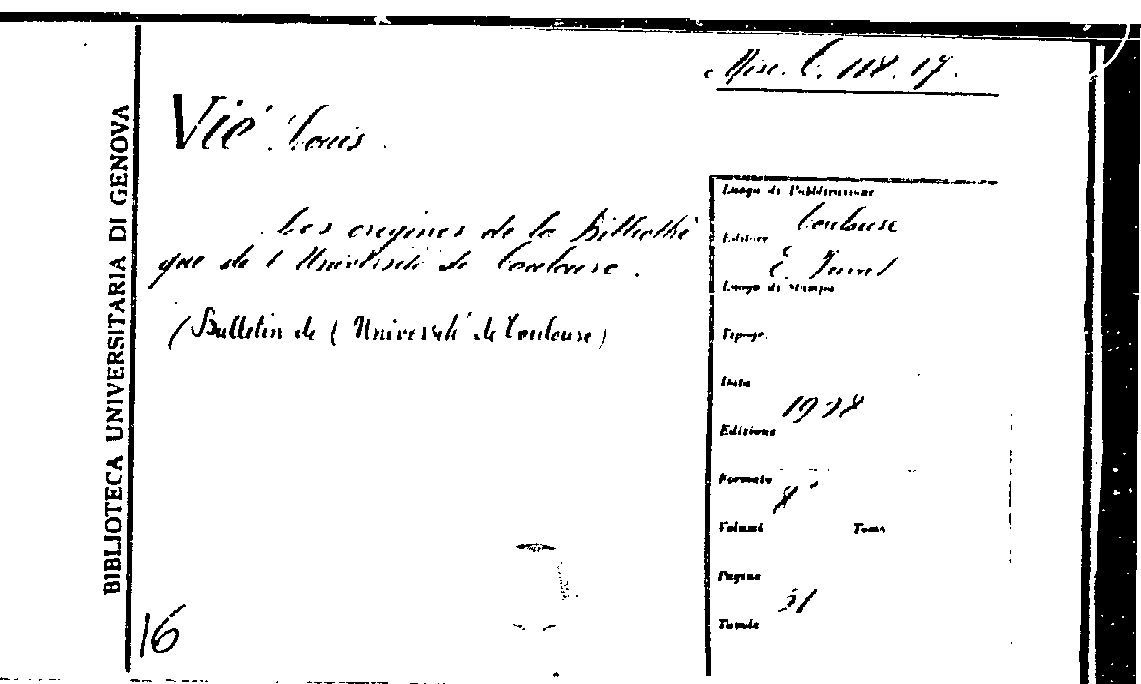 Misc. C. 118. 17.
Vié Louis.
Les origines de la Bibliothè
que de l'Université de Toulouse.
(Bulletin de l'Université de Toulouse)
BIBLIOTECA UNIVERSITARIA DI GENOVA
16
Luogo di Pubblicazione
Toulouse
Editore
E.
Luogo di stampa
Tipogr.
Data
1928
Edizione
Formato
8°
Volumi Tomo
Pagine
31
Tavole